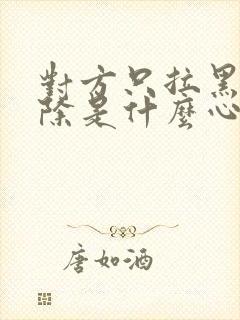 對方只拉黑
除是什麼心
唐如酒